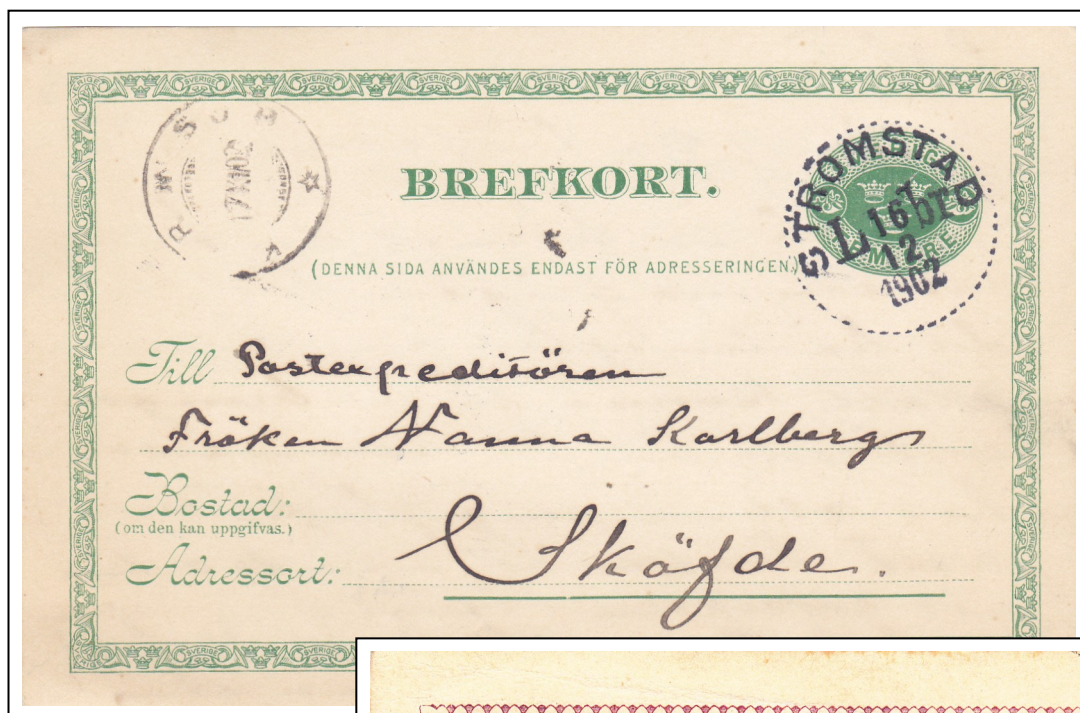 BREFKORT.
(DENNA SIDA ANVÄNDES ENDAST FÖR ADRESSERINGEN.)
STRÖMSTAD
16
12
1902
Till Postexpeditören
Fröken Nanna Karlberg
Bostad:
(om den kan uppgifvas.)
Adressort: Sköfde.